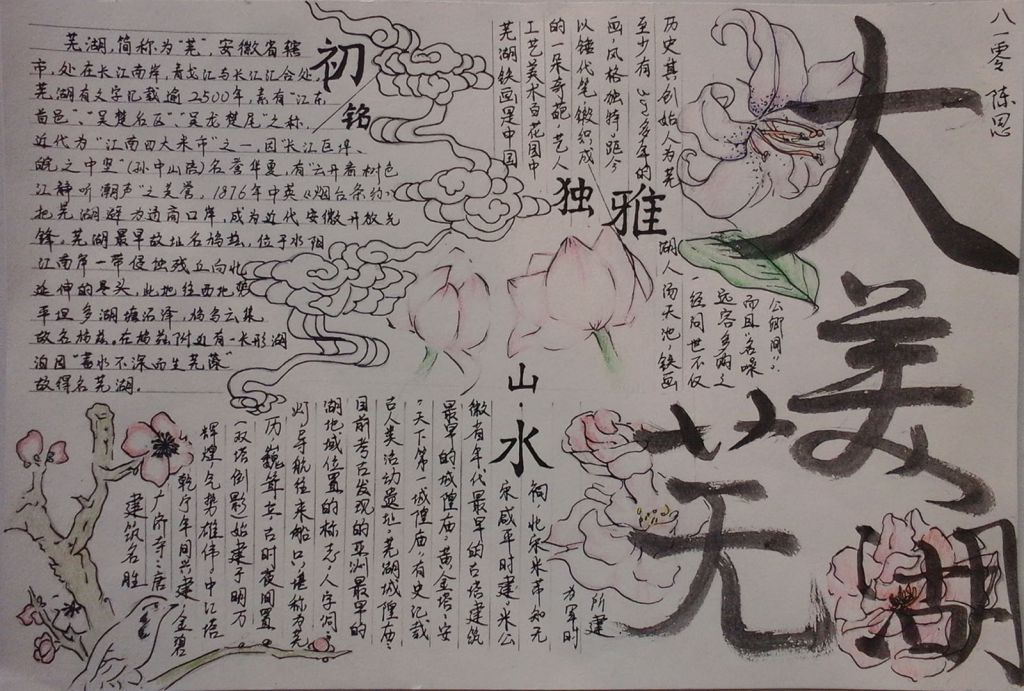 八一零 陈思
大美芜湖
初铭
芜湖,简称为"芜",安徽省辖
市,处在长江南岸,青弋江与长江汇合处,
芜湖有文字记载逾2500年,素有"江东
首邑"、"吴楚名区"、"吴龙楚尾"之称,
近代为"江南四大米市"之一,因"长江巨埠、
皖之中坚"(孙中山语)名誉华夏,有"云开看树色
江静听潮声"之美誉,1876年中英《烟台条约》
把芜湖辟为通商口岸,成为近代安徽开放先
锋。芜湖最早故址名鸠兹,位于水阳
江南岸一带侵蚀残丘向北
延伸的尽头,此地往西地势
平坦多湖塘沼泽,鸠鸟云集
故名鸠兹。在鸠兹附近有一长形湖
泊因"蓄水不深而生芜藻"
故得名芜湖。
独雅
芜湖铁画是中国
工艺美术百花园中
的一朵奇葩,艺人
以锤代笔锻织成
画,风格独特,距今
至少有多年的
历史,其创始人为芜
湖人汤天池,铁画
一经问世不仅
远客多购之
而且名噪
公卿间∵
山·水
建筑名胜
广济寺:唐
乾宁年间兴建,金碧
辉煌,气势雄伟,中江塔
双塔倒影始建于明万
历,巍峰立,古时夜间置
灯,导航往来船口,堪称为芜
湖地域位置的标志,人字洞:
目前考古发现的亚洲最早的
古人类活动遗址。芜湖城隍庙:
"天下第一城隍庙",有史记载
最早的城隍庙。黄金塔:安
徽省年代最早的古塔建筑
宋咸平时建。米公
祠:北宋米芾知无
为军时
所建